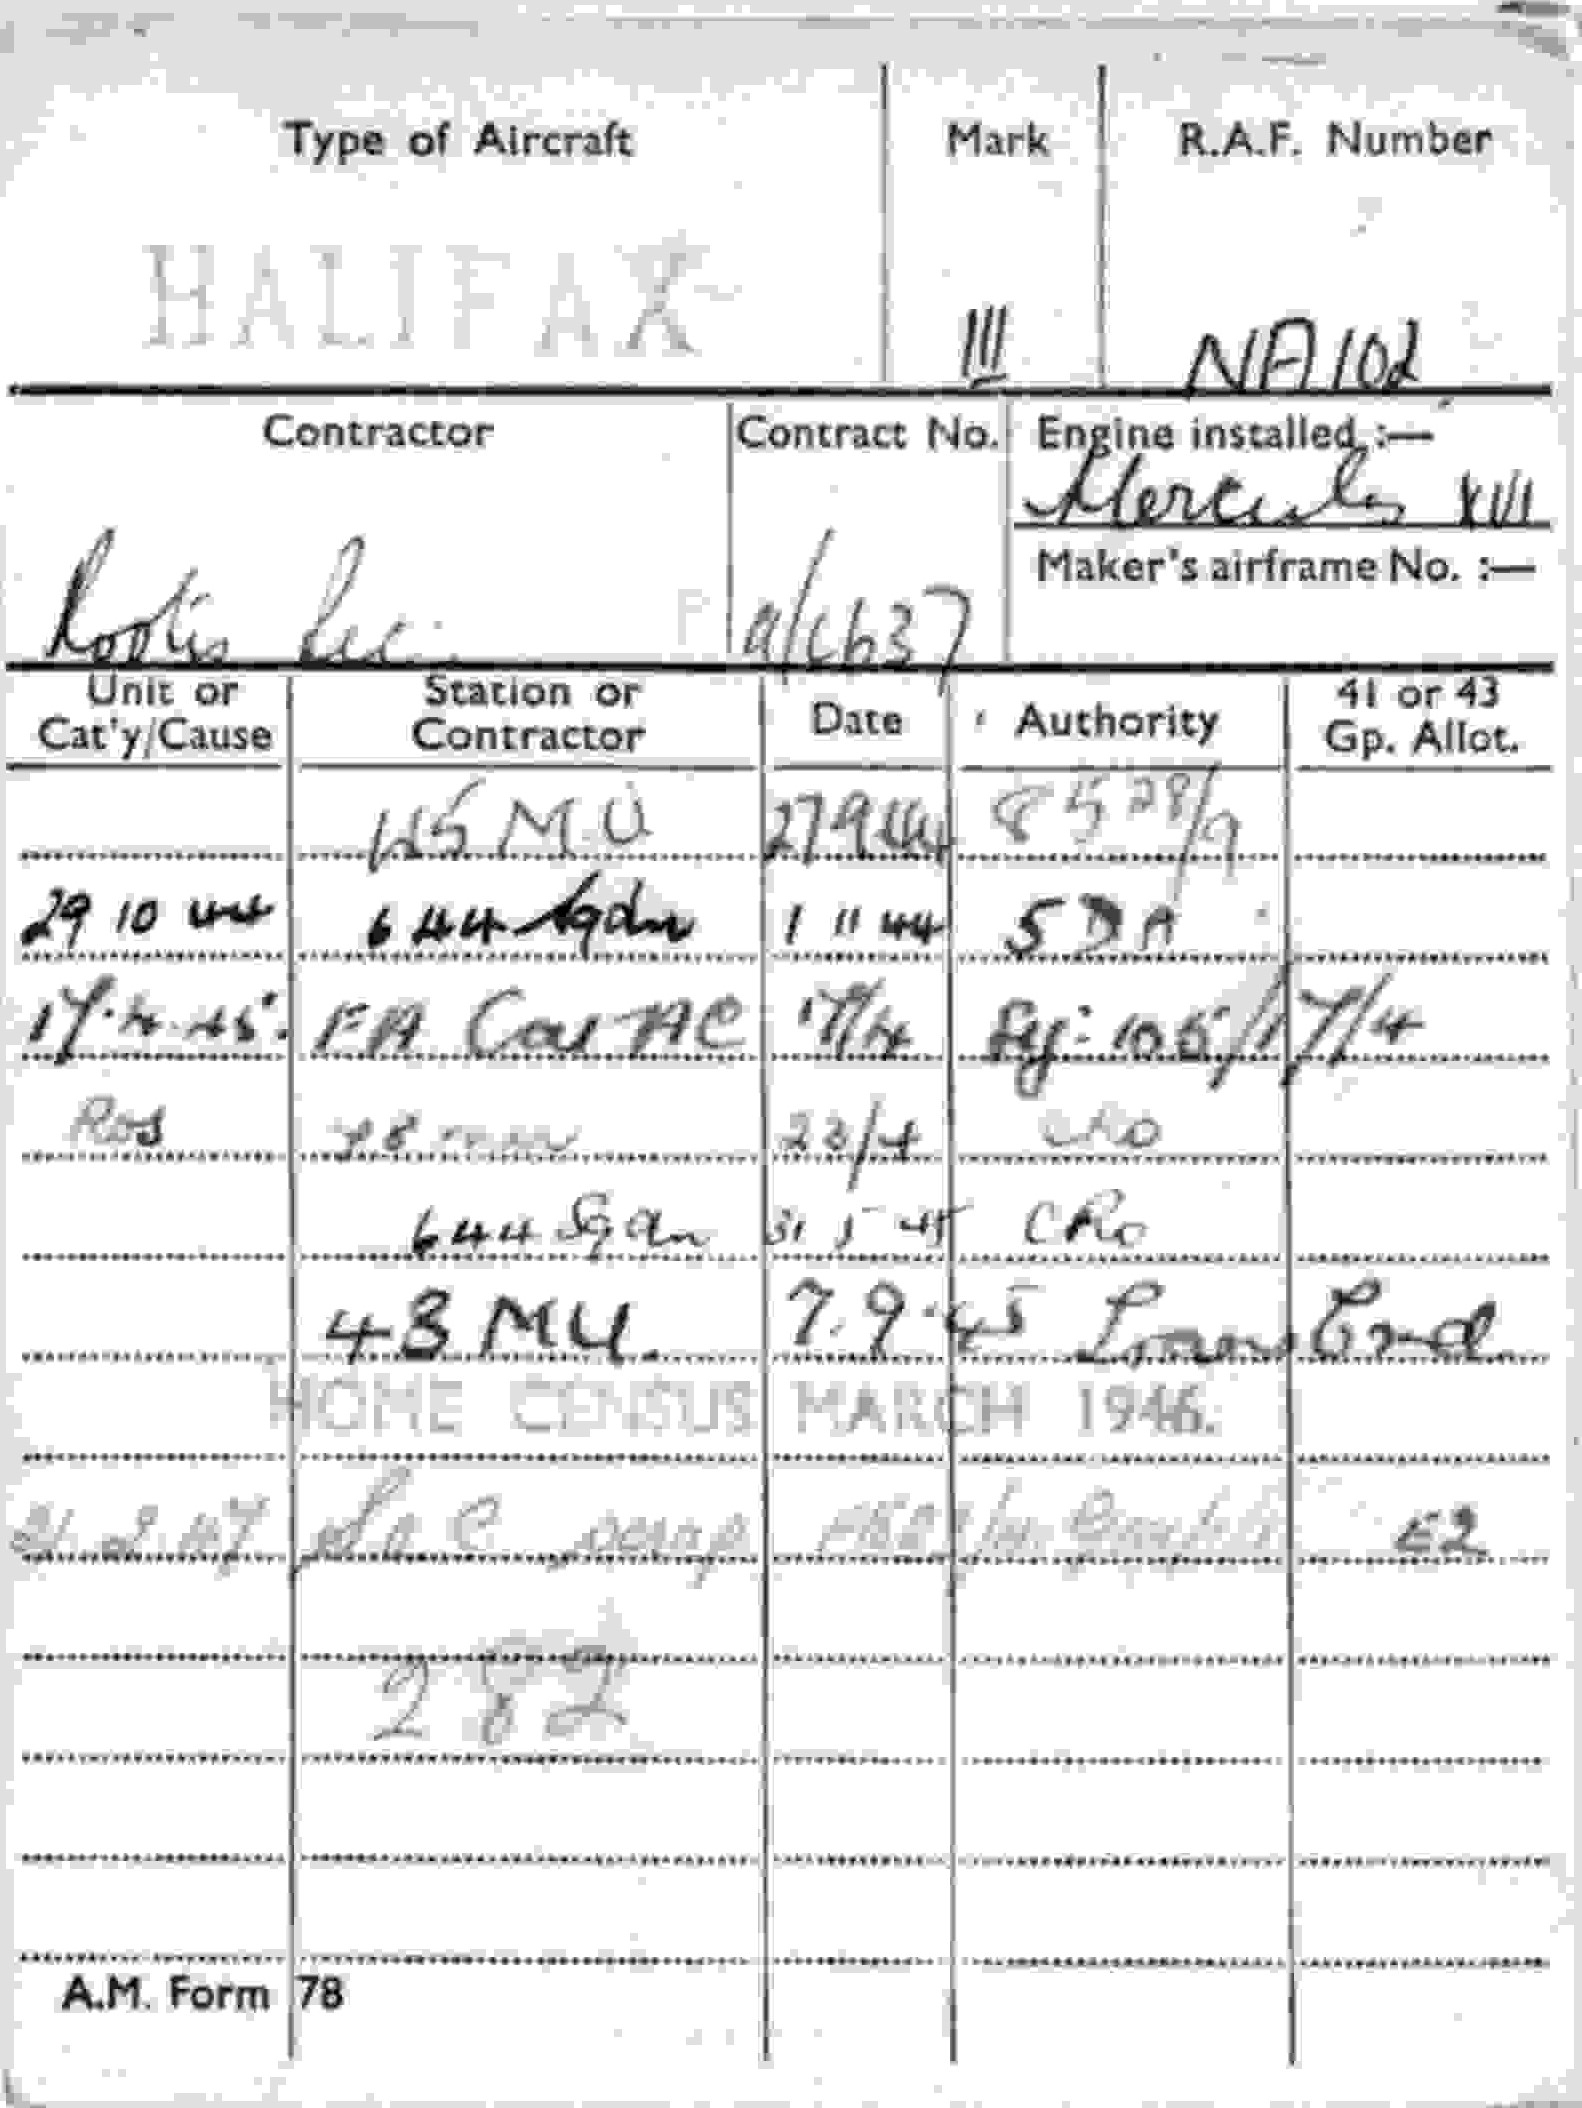 Type of Aircraft Mark R.A.F. Number
HALIFAX III NA102
Contractor Contract No. Engine installed :—
Hercules XVI
Maker's airframe No. :—
Rootes a/c637
Unit or Cat'y/Cause Station or Contractor Date Authority 41 or 43 Gp. Allot.
45 MU 27 9 44 85 28/9
29 10 44 644 Sqdn 1 11 44 5 D A
17.4.45. FA Cat AC 17/4 Sig: 105/17/4
Ros 23/4 CRO
644 Sqdn 31 5 45 CRO
48 MU. 7.9.45 Trans Cmd.
HOME CENSUS MARCH 1946.
2 47 S.O.C. scrap E2
282
A.M. Form 78